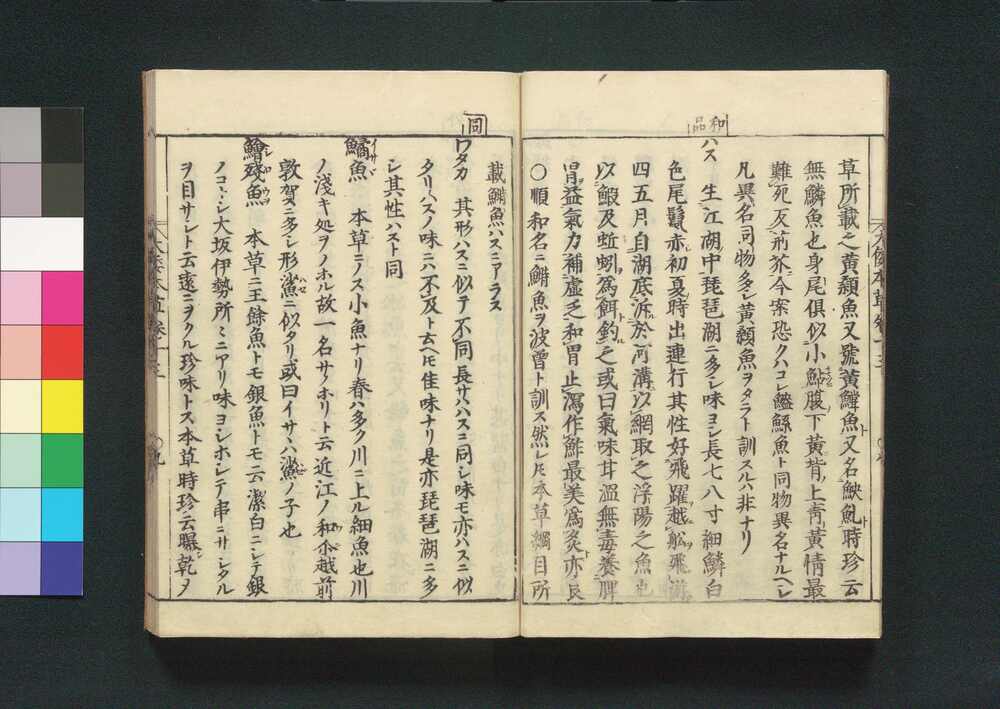 草所載之黃顙魚又號黃鱨魚又名鉠䰲時珍云
無鱗魚也身尾俱似小鮎腹下黃背上靑黃情最
難死反荊芥今案恐クハコレ䲛䱂魚ト同物異名ナルヘシ
凡異名同物多シ黃顙魚ヲタラト訓スルハ非ナリ
和品
ハス 生江湖中琵琶湖ニ多シ味ヨシ長七八寸細鱗白
色尾鬛赤初夏時出連行其性好飛躍越舩飛游
四五月自湖底泝於河溝以網取之浮陽之魚也
以鰕及蚯蚓爲餌釣之或曰氣味甘溫無毒養脾
胃益氣力補虛乏和胃止瀉作鮓最美爲炙亦良
○順和名ニ鰣魚ヲ波曾ト訓ス然レ𪜈本草綱目所
載鰣魚ハスニアラス
同
ワタカ 其形ハスニ似テ不同長サハスニ同シ味モ亦ハスニ似
タリハスノ味ニハ不及ト云ヘ𪜈佳味ナリ是亦琵琶湖ニ多
シ其性ハスト同
鱊魚 本草ニノス小魚ナリ春ハ多ク川ニ上ル細魚也川
ノ淺キ処ヲノホル故一名サノホリト云近江ノ和尓越前
敦賀ニ多シ形鯊ニ似タリ或曰イサヽハ鯊ノ子也
鱠殘魚 本草ニ王餘魚トモ銀魚トモ云潔白ニシテ銀
ノコトシ大坂伊勢所々ニアリ味ヨシホシテ串ニサシタル
ヲ目サシト云遠ニヲクル珍味トス本草時珍云曝乾ヲ
大倭本草卷十三